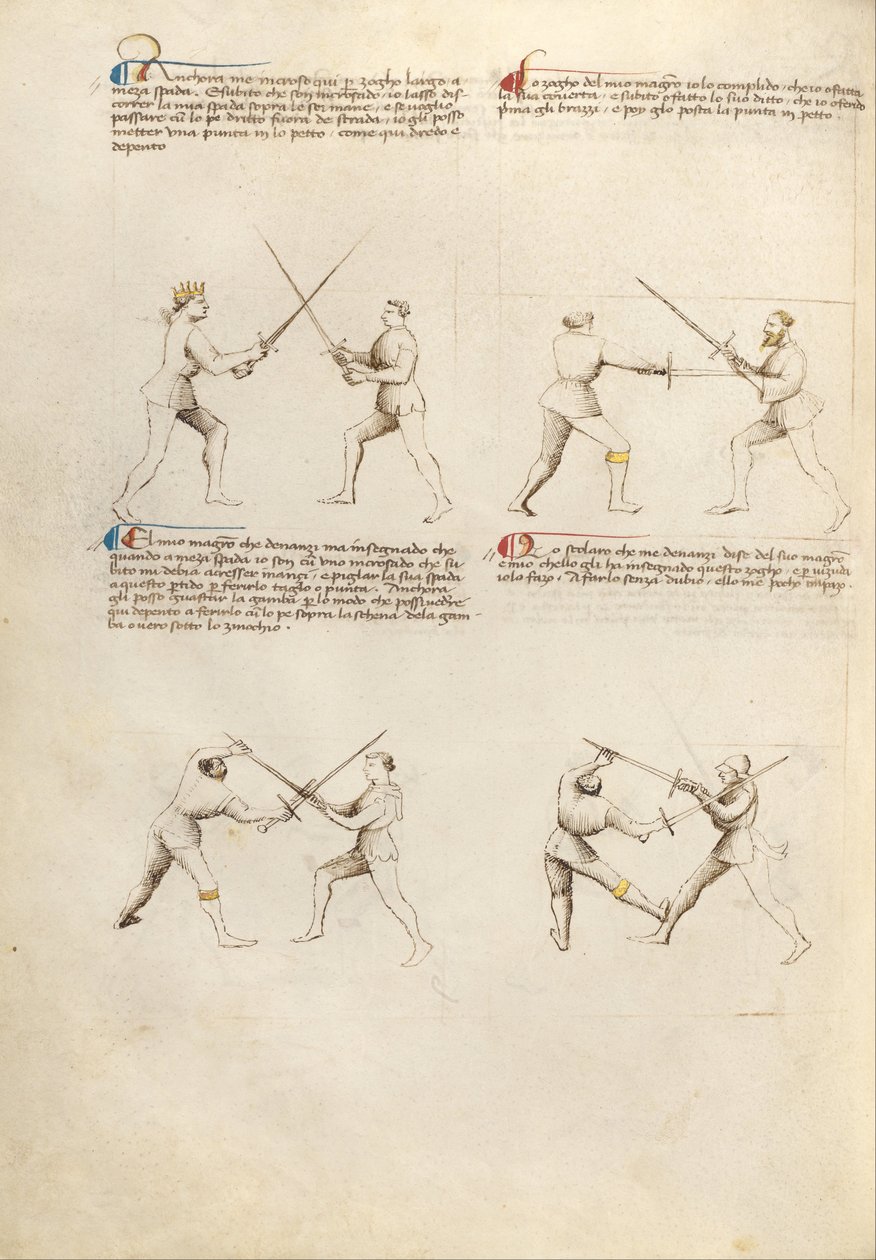 Anchora me incroso qui p zogho largo a
meza spada. E subito che son incrosado, io lasso dis-
correr la mia spada sopra le soi mane, e se voglio
passare cu lo pe dritto fuora de strada, io gli posso
metter una punta in lo petto, come qui dredo e
depento
Lo zogho del mio magro io lo complido, che io ò fatta
la sua coverta, e subito ò fatto lo suo ditto, che io ofendo
prima gli brazzi, e poy glo posta la punta in petto.
El mio magro che denanzi ma insegnado che
quando a meza spada io son cu uno incrosado che su-
bito mi debia acresser inanzi, e pigliar la sua spada
a questo ptido p ferirlo taglo o punta. Anchora
gli posso guastar la gamba p lo modo che possi vedere
qui depento a ferirlo cu lo pe sopra la schena dela gam-
ba overo sotto lo zinochio.
Lo scolaro che me denanzi dise del suo magro
e mio chello gli ha insegnado questo zogho, e p vizuda
io lo fazo. A farlo senza dubio, ello me pocho impazo.